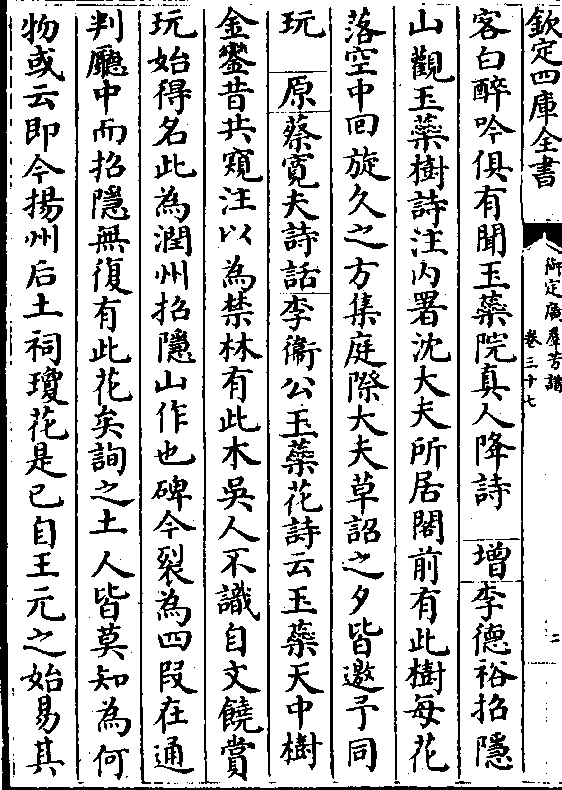 欽定四庫全書
御定廣羣芳譜
卷三十七
二
客白醉吟俱有聞玉蘂院真人降詩　增李德裕招隱
山觀玉蘂樹詩注内署沈大夫所居閣前有此樹每花
落空中回旋久之方集庭際大夫草詔之夕皆邀予同
玩　原蔡寛夫詩話李衞公玉蘂花詩云玉蘂天中樹
金鑾昔共窺注以為禁林有此木吳人不識自文饒賞
玩始得名此為潤州招隱山作也碑今裂為四段在通
判廳中而招隱無復有此花矣詢之土人皆莫知為何
物或云即今揚州后土祠瓊花是已自王元之始易其